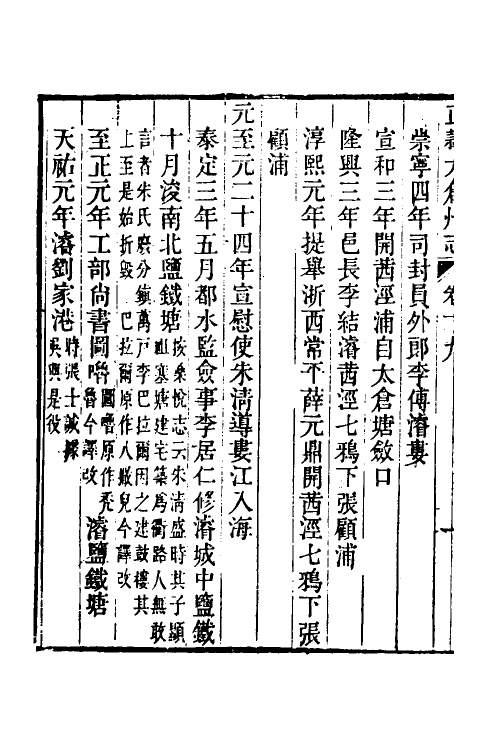 直隸太倉州志 卷十九
崇寧四年司封員外郎李傅濬婁
宣和三年開茜涇浦自太倉塘斂口
隆興三年邑長李結濬茜涇七鴉下張顧浦
淳熙元年提舉浙西常平薛元鼎開茜涇七鴉下張
顧浦
元至元二十四年宣慰使朱清導婁江入海
泰定三年五月都水監僉事李居仁修濬城中鹽鐵
十月浚南北鹽鐵塘按桑悅志云朱清盛時其子顯祖塞塘建宅築爲衢路人無敢
言者朱氏廢分鎮萬戸李巴拉爾因之建鼓樓其上至是始折毀 巴拉爾原作八厳兒今譯改
至正元年工部尚書圖嚕圖嚕原作禿魯今譯改濬鹽鐵塘
天祐元年濬劉家港時張士誠據吳興是役